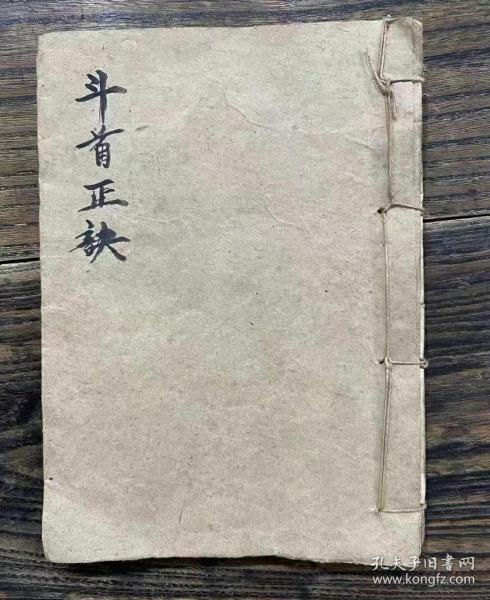 斗首正訣
孔夫子旧书网
www.kongfz.com